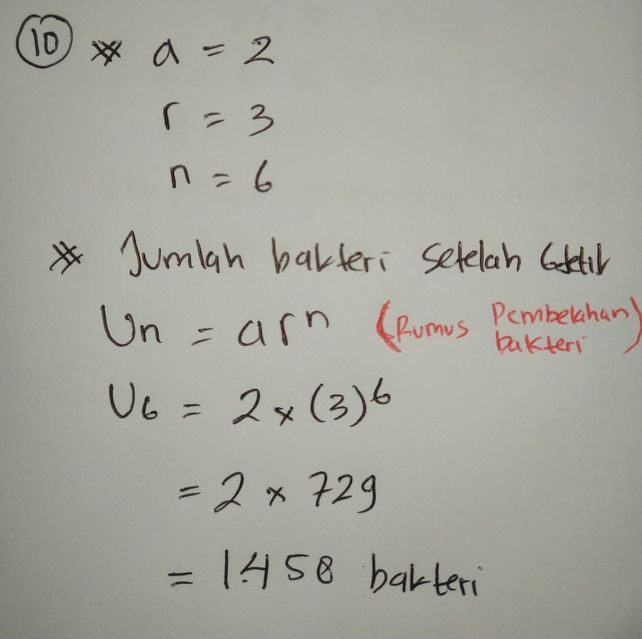 10 * a = 2
r = 3
n = 6
* Jumlah bakteri setelah 6 detik
Un = arⁿ (Rumus Pembelahan bakteri)
U6 = 2 × (3)⁶
= 2 × 729
= 1.458 bakteri